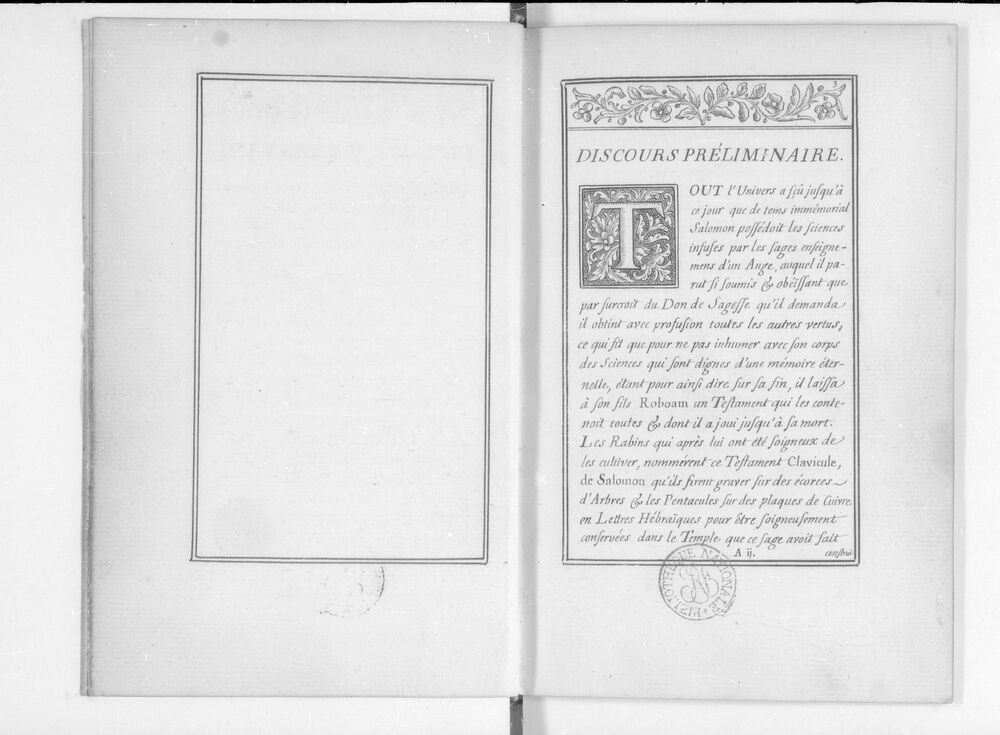 3
DISCOURS PRÉLIMINAIRE.
TOUT l'Univers a sçû jusqu'à
ce jour que de tems immémorial
Salomon possédoit les sciences
infuses par les sages enseigne-
mens d'un Ange, auquel il pa-
rut si soumis & obéissant que
par surcroit du Don de Sagesse qu'il demanda
il obtint avec profusion toutes les autres vertus,
ce qui fit que pour ne pas inhumer avec son corps
des Sciences qui sont dignes d'une mémoire éter-
nelle, étant pour ainsi dire sur sa fin, il laissa
à son fils Roboam un Testament qui les conte-
noit toutes & dont il a joui jusqu'à sa mort.
Les Rabins qui après lui ont été soigneux de
les cultiver, nommérent ce Testament Clavicule,
de Salomon qu'ils firent graver sur des écorces
d'Arbres & les Pentacules sur des plaques de Cuivre
en Lettres Hébraïques pour être soigneusement
conservées dans le Temple que ce sage avoit fait
A ij.
construi
BIBLIOTHÈQUE NATIONALE